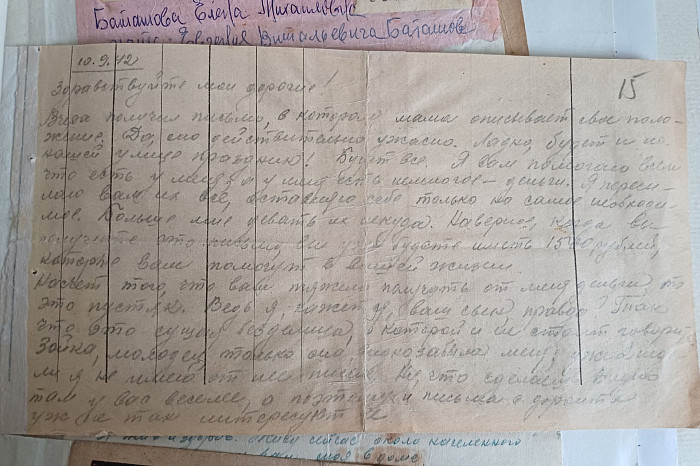 Баташова Елена Михайловна
Евгения Витальевича Баташов
10.9.42
Здравствуйте мои дорогие!
15
Вчера получил письмо, в котором мама описывает свое поло-
жение. Да, оно действительно ужасно. Ладно, будет и на
нашей улице праздник! Будет все. Я вам помогаю всем
что есть у меня, а у меня есть немногое – деньги. Я пересы-
лаю вам их все, оставляю себе только на самое необходи-
мое. Больше мне девать их некуда. Наверное, когда вы
получите это письмо, вы уже будете иметь рублей,
которые вам помогут в вашей жизни.
Насчет того, что вам тяжело получать от меня деньги, то
это пустяк. Ведь я, кажется, ваш сын правда? Так
что это сущая безделица, о которой и не стоит говори
Зойка, молодец только она
ли я не имел от нее писем. Ну, что сделаешь
там у вас веселье, а поэтому и письма с фронта
уж не так интересуют ее
около населенного